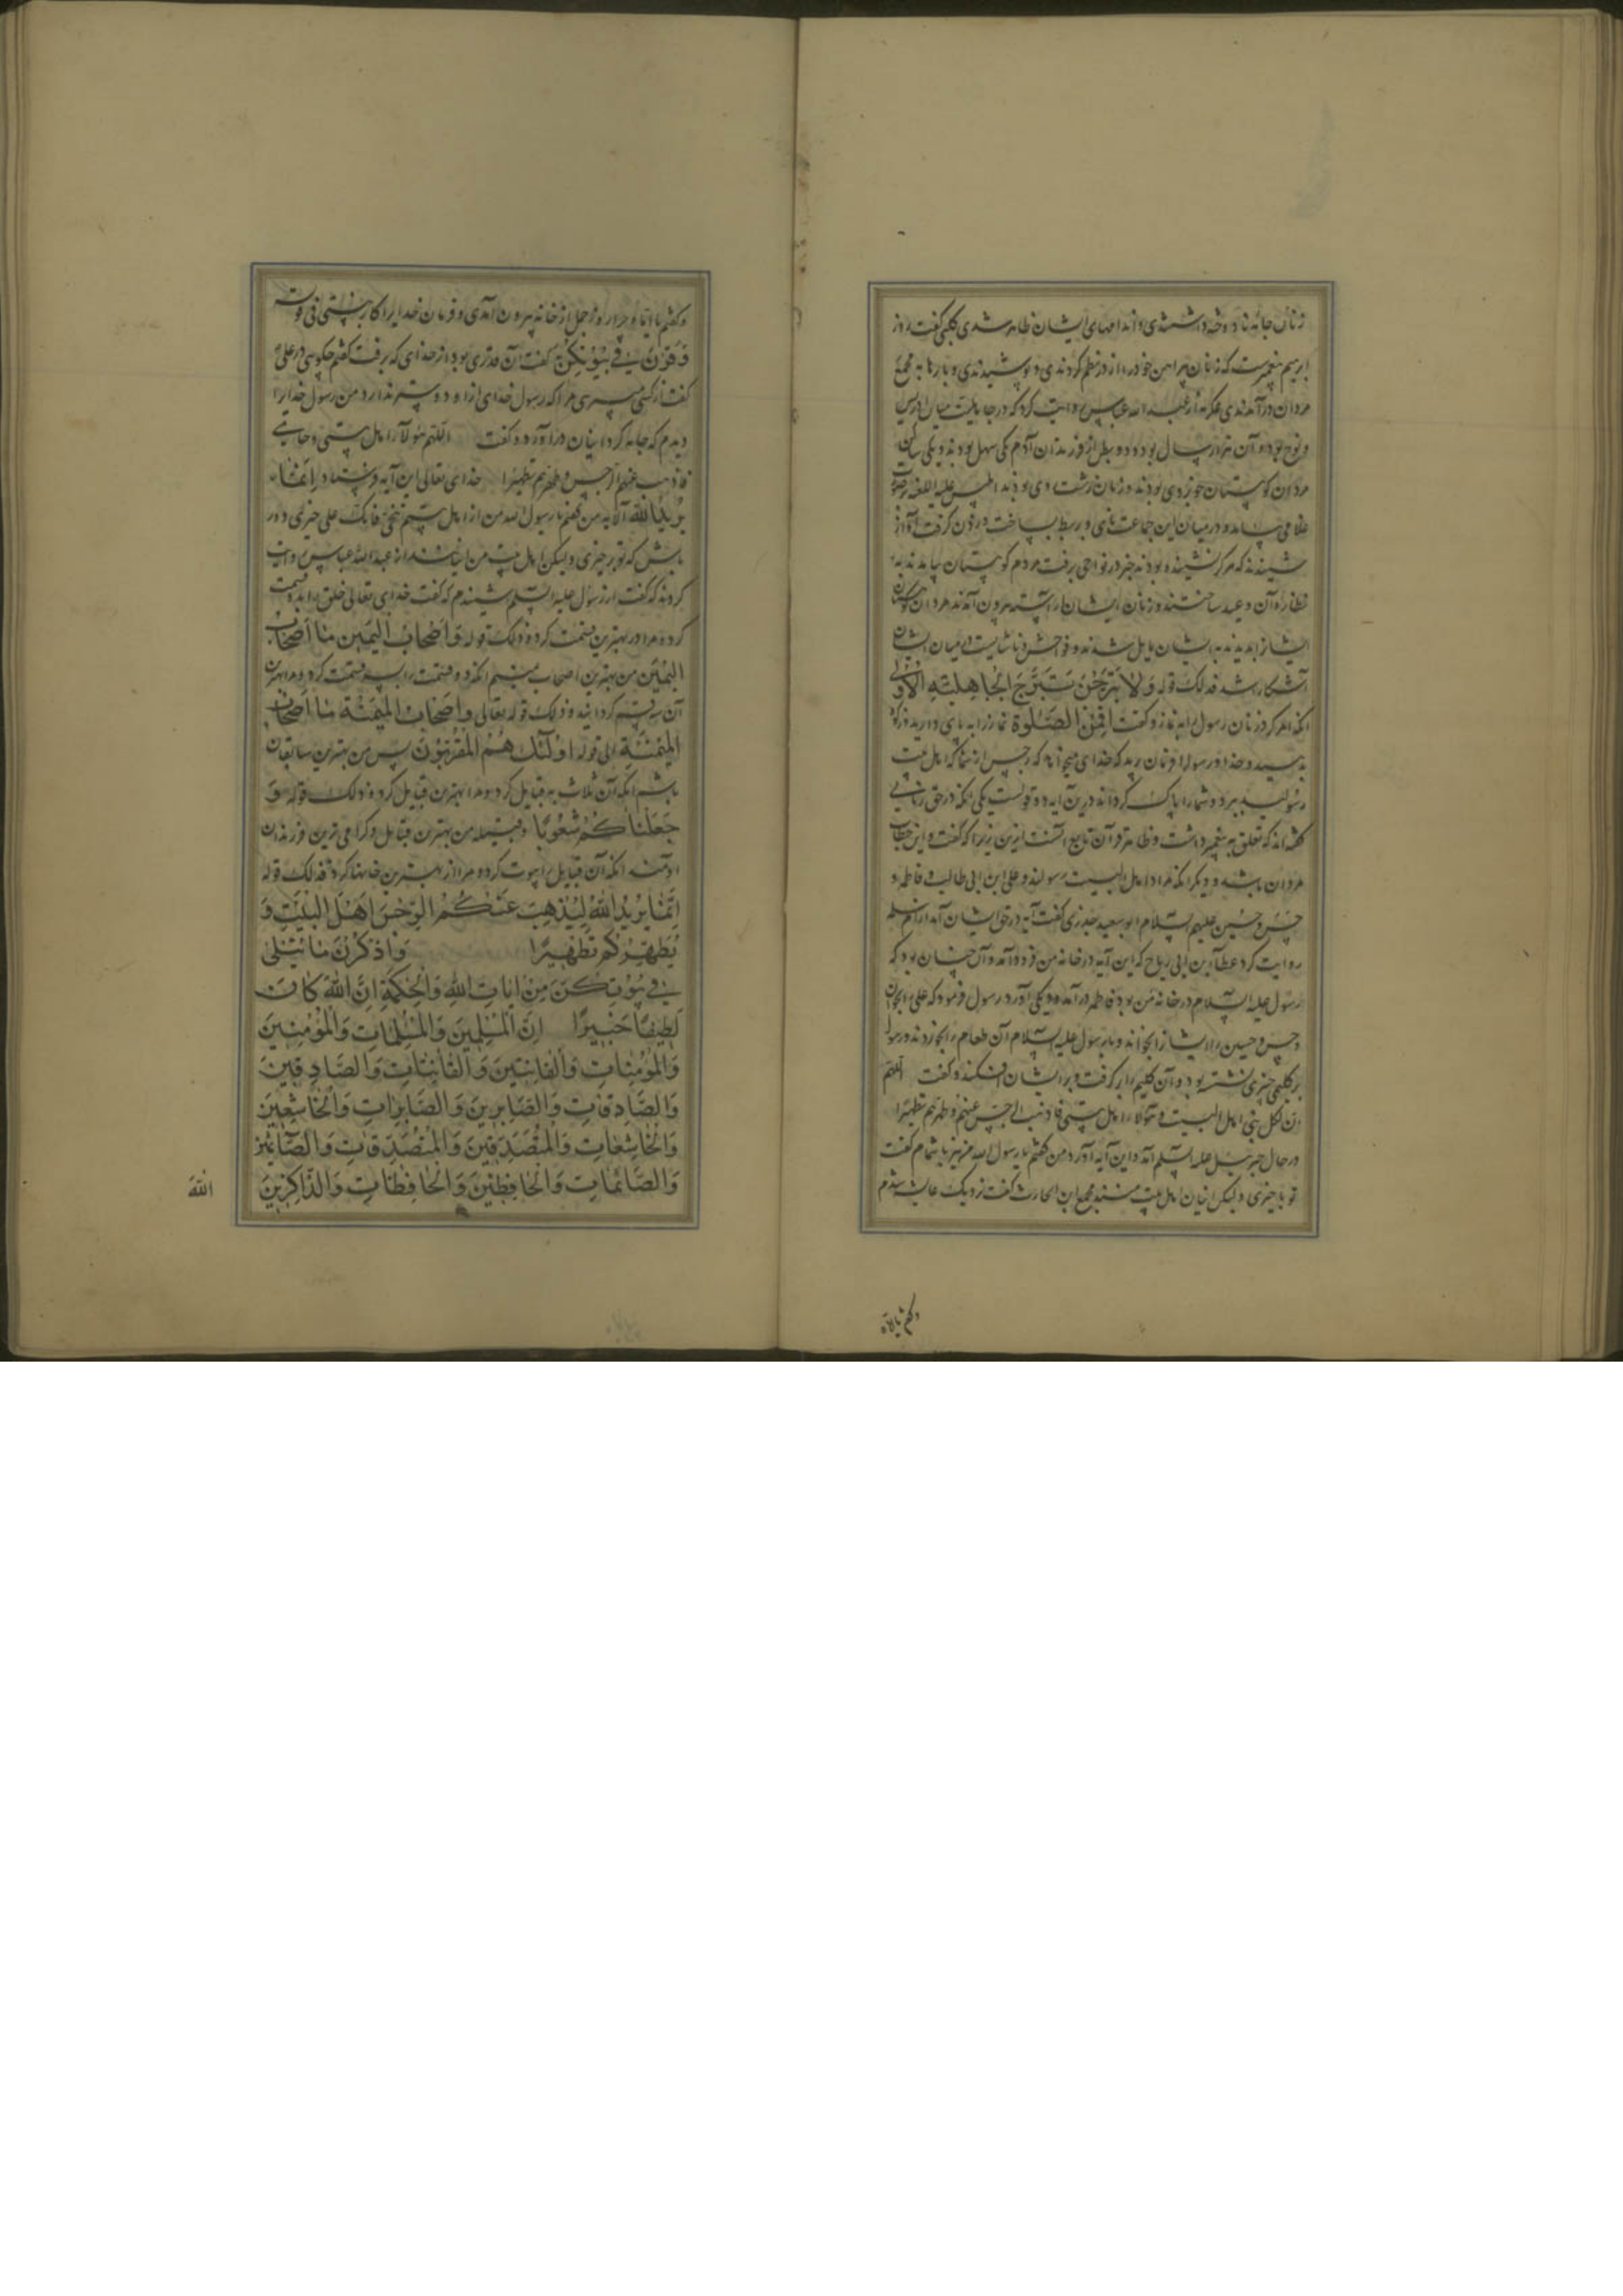 زنان جامه نادوخته داشتندی و اندامهای ایشان ظاهر شدی کلبی گفت روز
ابرهیم پیغمبرست که زنان پیراهن خود را از در نظم کردندی و پوشیدندی و بارها به مجمع
مردان درآمدندی عکرمه از عبد الله عباس روایت کرد که در جاهلیت میان ادریس
و نوح بود و آن هزار سال بود و دو بطن از فرزندان آدم یکی سهل بودند و یکی ساکن
مردان کوهستان خوبروی بودند و زنان زشت روی بودند ابلیس علیه اللعنه بصورت
غلامی بیامد و در میان این جماعت نای و بربط بساخت و زدن گرفت آواز
شنیدند که هرگز نشنیده بودند خبر در نواحی برفت مردم کوهستان بیامدند به
نظاره آن و عید ساختند و زنان ایشان آراسته بیرون آمدند مردان کوهستان
ایشانرا بدیدند به ایشان مایل شدند و فواحش و ناشایست در میان ایشان
آشکارا شد فذلک قوله وَلَا تَبَرَّجْنَ تَبَرُّجَ الْجَاهِلِیَّةِ الْأُولَی
آنکه امر کرد زنان رسول را به نماز و گفت اَقِمْنَ الصَّلٰوةَ نماز را به پای دارید و زکوة
بدهید و خدا و رسول را فرمان برید که خدای میخواهد که رجس از شما که اهل بیت
رسولید ببرد و شما را پاک گرداند درین آیه دو قولست یکی آنکه در حق زنانی
گفته‌اند که تعلق به پیغمبر داشت و ظاهر قرآن تابع آنست ازین زیرا که گفت و این خطاب
مردان باشد و دیگر آنکه مراد اهل البیت رسولند و علی ابن ابی طالب و فاطمه و
حسن و حسین علیهم السلام ابو سعید خدری گفت آیه در حق ایشان آمد از ام سلمه
روایت کرد عطاء بن ابی رباح که این آیه در خانه من فرود آمد و آن چنان بود که
رسول علیه السلام در خانه من بود فاطمه درآمد و دیگی آورد رسول فرمود که علی را بخوان
و حسن و حسین را ایشانرا بخواند و با رسول علیه السلام آن طعام را بخوردند و رسول
بر گلیمی خیبری نشسته بود و آن گلیم را برگرفت و بر ایشان افکند و گفت اللهم
ان لکل نبی اهل البیت و هؤلاء اهل بیتی فاذهب الرجس عنهم و طهرهم تطهیرا
در حال جبرئیل علیه السلم آمد و این آیه آورد من گفتم یا رسول الله من نیز با شماام گفت
تو با خیری ولیکن اینان اهل بیت منند مجمع ابن الحارث گفت نزدیک عایشه شدم
و گفتم یا اماه
و گفتم یا اماه چرا روز جمل از خانه بیرون آمدی و فرمان خدایرا کار نبستی فی قوله
وَقَرْنَ فِی بُیُوتِکُنَّ گفت آن قدری بود از خدای که برفت گفتم چگویی در علی
گفت از کسی میپرسی مرا که رسول خدای از او دوستر ندارد و من رسول خدایرا
دیدم که جامه گرد اینان درآورد و گفت اللهم هؤلاء اهل بیتی و حامتی
فاذهب عنهم الرجس و طهرهم تطهیرا خدای تعالی این آیه فرستاد اِنَّمَا
یُرِیدُ اللهُ الآیه من گفتم یا رسول الله من از اهل بیتم تنحی فانک علی خیر دور
باش که تو بر خیری ولیکن اهل بیت من اینانند از عبد الله عباس روایت
کردند که گفت از رسول علیه السلم شنیدم که گفت خدای تعالی خلق را بدو قسمت
کرد و مرا در بهترین قسمت کرد و ذلک قوله وَاَصْحَابُ الْیَمِینِ مَا اَصْحَابُ
الْیَمِینِ من بهترین اصحاب یمینم آنکه دو قسمت را سه قسمت کرد و مرا بهترین
آن سه قسم گردانید و ذلک قوله تعالی وَاَصْحَابُ الْمَیْمَنَةِ مَا اَصْحَابُ
الْمَیْمَنَةِ الی قوله اُولٰئِکَ هُمُ الْمُقَرَّبُونَ پس من بهترین سابقان
باشم آنکه آن ثلاث به قبایل کرد و مرا بهترین قبایل کرد و ذلک قوله وَ
جَعَلْنَاکُمْ شُعُوبًا و قبیله من بهترین قبایل و گرامی ترین فرزندان
آدمند آنکه آن قبایل را بیوت کرد و مرا از بهترین خانها کرد فذلک قوله
اِنَّمَا یُرِیدُ اللهُ لِیُذْهِبَ عَنْکُمُ الرِّجْسَ اَهْلَ الْبَیْتِ وَ
یُطَهِّرَکُمْ تَطْهِیرًا وَاذْکُرْنَ مَا یُتْلٰی
فِی بُیُوتِکُنَّ مِنْ اٰیَاتِ اللهِ وَالْحِکْمَةِ اِنَّ اللهَ کَانَ
لَطِیفًا خَبِیرًا اِنَّ الْمُسْلِمِینَ وَالْمُسْلِمَاتِ وَالْمُؤْمِنِینَ
وَالْمُؤْمِنَاتِ وَالْقَانِتِینَ وَالْقَانِتَاتِ وَالصَّادِقِینَ
وَالصَّادِقَاتِ وَالصَّابِرِینَ وَالصَّابِرَاتِ وَالْخَاشِعِینَ
وَالْخَاشِعَاتِ وَالْمُتَصَدِّقِینَ وَالْمُتَصَدِّقَاتِ وَالصَّائِمِینَ
وَالصَّائِمَاتِ وَالْحَافِظِینَ وَالْحَافِظَاتِ وَالذَّاکِرِینَ
اللهَ